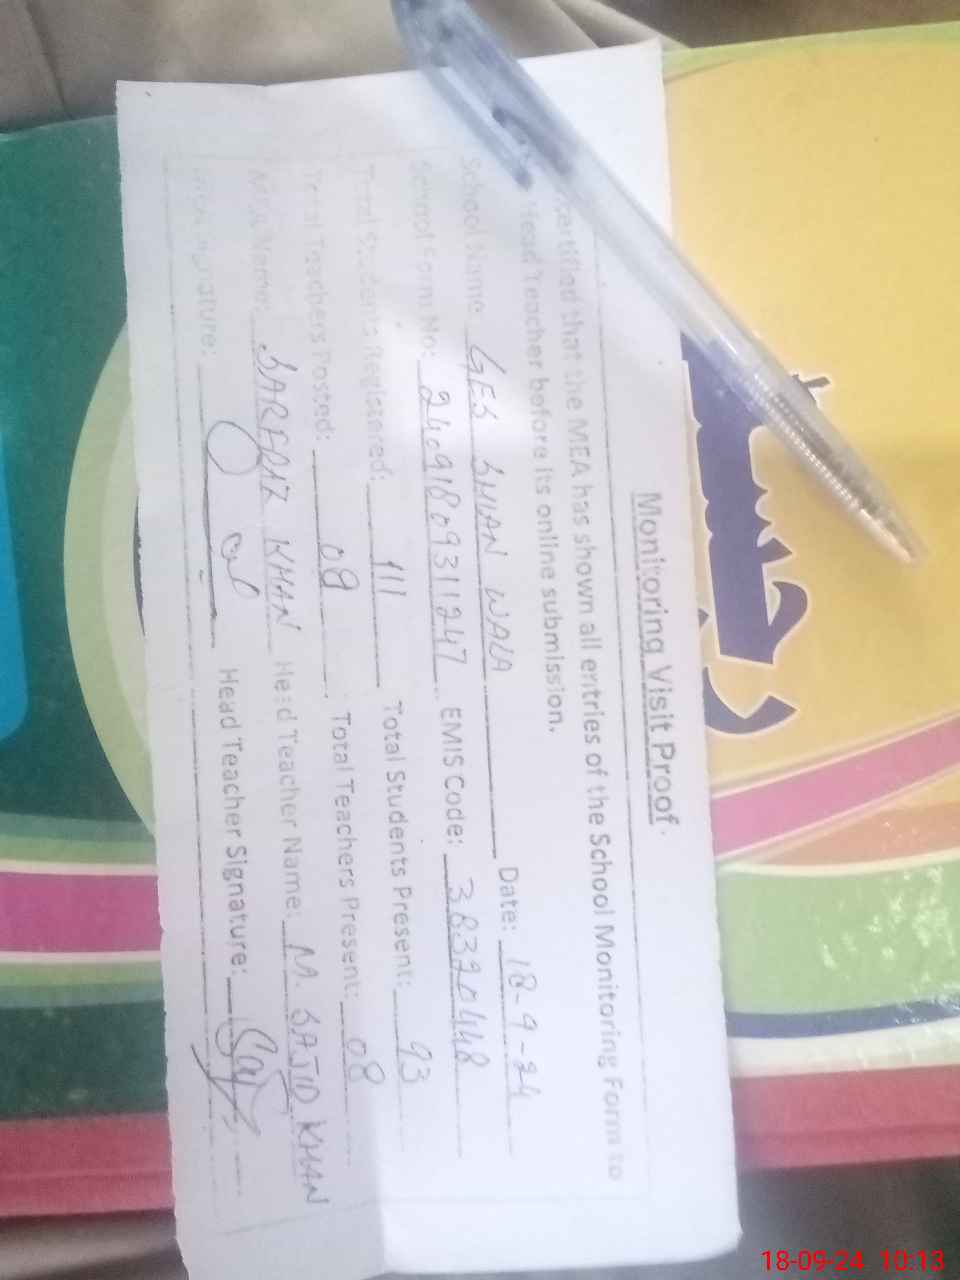 Monitoring Visit Proof
Certified that the MEA has shown all entries of the School Monitoring Form to
Head Teacher before its online submission.
School Name: GES SHIAN WALA Date: 18-9-24
School Form No: 24091809311247 EMIS Code: 38320448
Total Students Registered: 111 Total Students Present: 93
Total Teachers Posted: 08 Total Teachers Present: 08
MEA Name: SARFRAZ KHAN Head Teacher Name: M. SAJID KHAN
Signature: Head Teacher Signature:
18-09-24 10:13